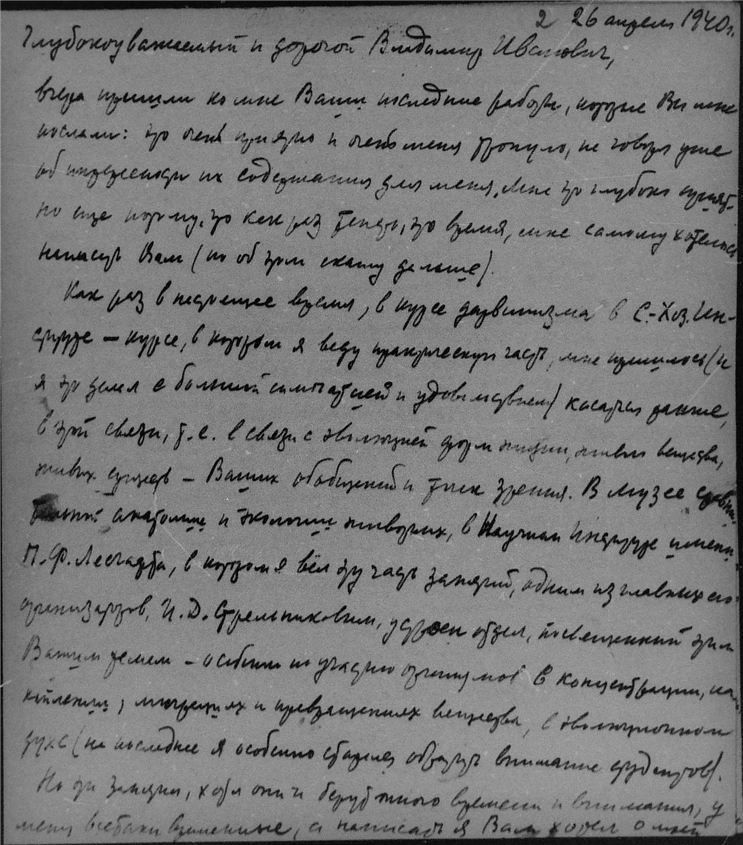 2 26 апреля 1940 г.
Глубокоуважаемый и дорогой Владимир Иванович,
вчера пришли ко мне Ваши последние работы, которые Вы мне
послали: это очень приятно и очень меня тронуло, не говоря уже
об интересности их содержания для меня. Мне это глубоко прият-
но еще потому, что как раз теперь, это время, мне самому хотелось
написать Вам (но об этом скажу дальше).
Как раз в настоящее время, в курсе дарвинизма в С.-Хоз. Ин-
ституте – курсе, в котором я веду практическую часть, мне пришлось (и
я это делал с большой симпатией и удовольствием) касаться также,
в этой связи, т.е. в связи с эволюцией форм жизни, живого вещества,
живых существ – Ваших обобщений и точек зрения. В Музее сравни-
тельной анатомии и экологии животных, в Научном Институте имени
П.Ф. Лесгафта, в котором я вёл эту часть занятий, одним из главных его
организаторов, И.Д. Стрельниковым, устроен отдел, посвященный этим
Вашим темам – особенно участию организмов в концентрации, на-
коплении, миграциях и превращениях вещества, в эволюционном
духе (на последнее я особенно старался обратить внимание студентов).
Но эти занятия, хотя они и берут много времени и внимания, у
меня всё-таки временные, а написать я Вам хотел о моей